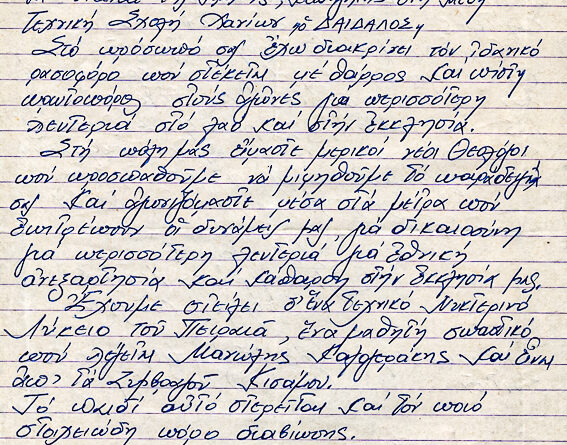 Τεχνική Σχολή Χανίων "ὁ ΔΑΙΔΑΛΟΣ"
Στό πρόσωπό σας ἔχω διακρίνει τόν ἰδανικό
ρασοφόρο πού στέκεται μέ θάρρος καί πίστη
πρωτοπόρος στούς ἀγῶνες γιά περισσότερη
λευτεριά στό λαό καί στήν ἐκκλησία.
Στή πόλη μας εἴμαστε μερικοί νέοι Θεολόγοι
πού προσπαθοῦμε νά μιμηθοῦμε τό παράδειγμά
σας καί ἀγωνιζόμαστε μέσα στά μέτρα πού
ἐπιτρέπουν οἱ δυνάμεις μας, γιά δικαιοσύνη
γιά περισσότερη λευτεριά γιά ἐθνική
ἀνεξαρτησία καί κάθαρση στήν ἐκκλησία μας.
Ἔχουμε στείλει σ' ἕνα τεχνικό Νυκτερινό
Λύκειο τοῦ Πειραιᾶ, ἕνα μαθητή σπαστικό
πού λέγεται Μανώλης Καλογεράκης καί εἶναι
ἀπό τά Κισάμου.
Τό παιδί αὐτό στερεῖται καί τόν ποιό
στοιχειώδη πόρο διαβίωσης.